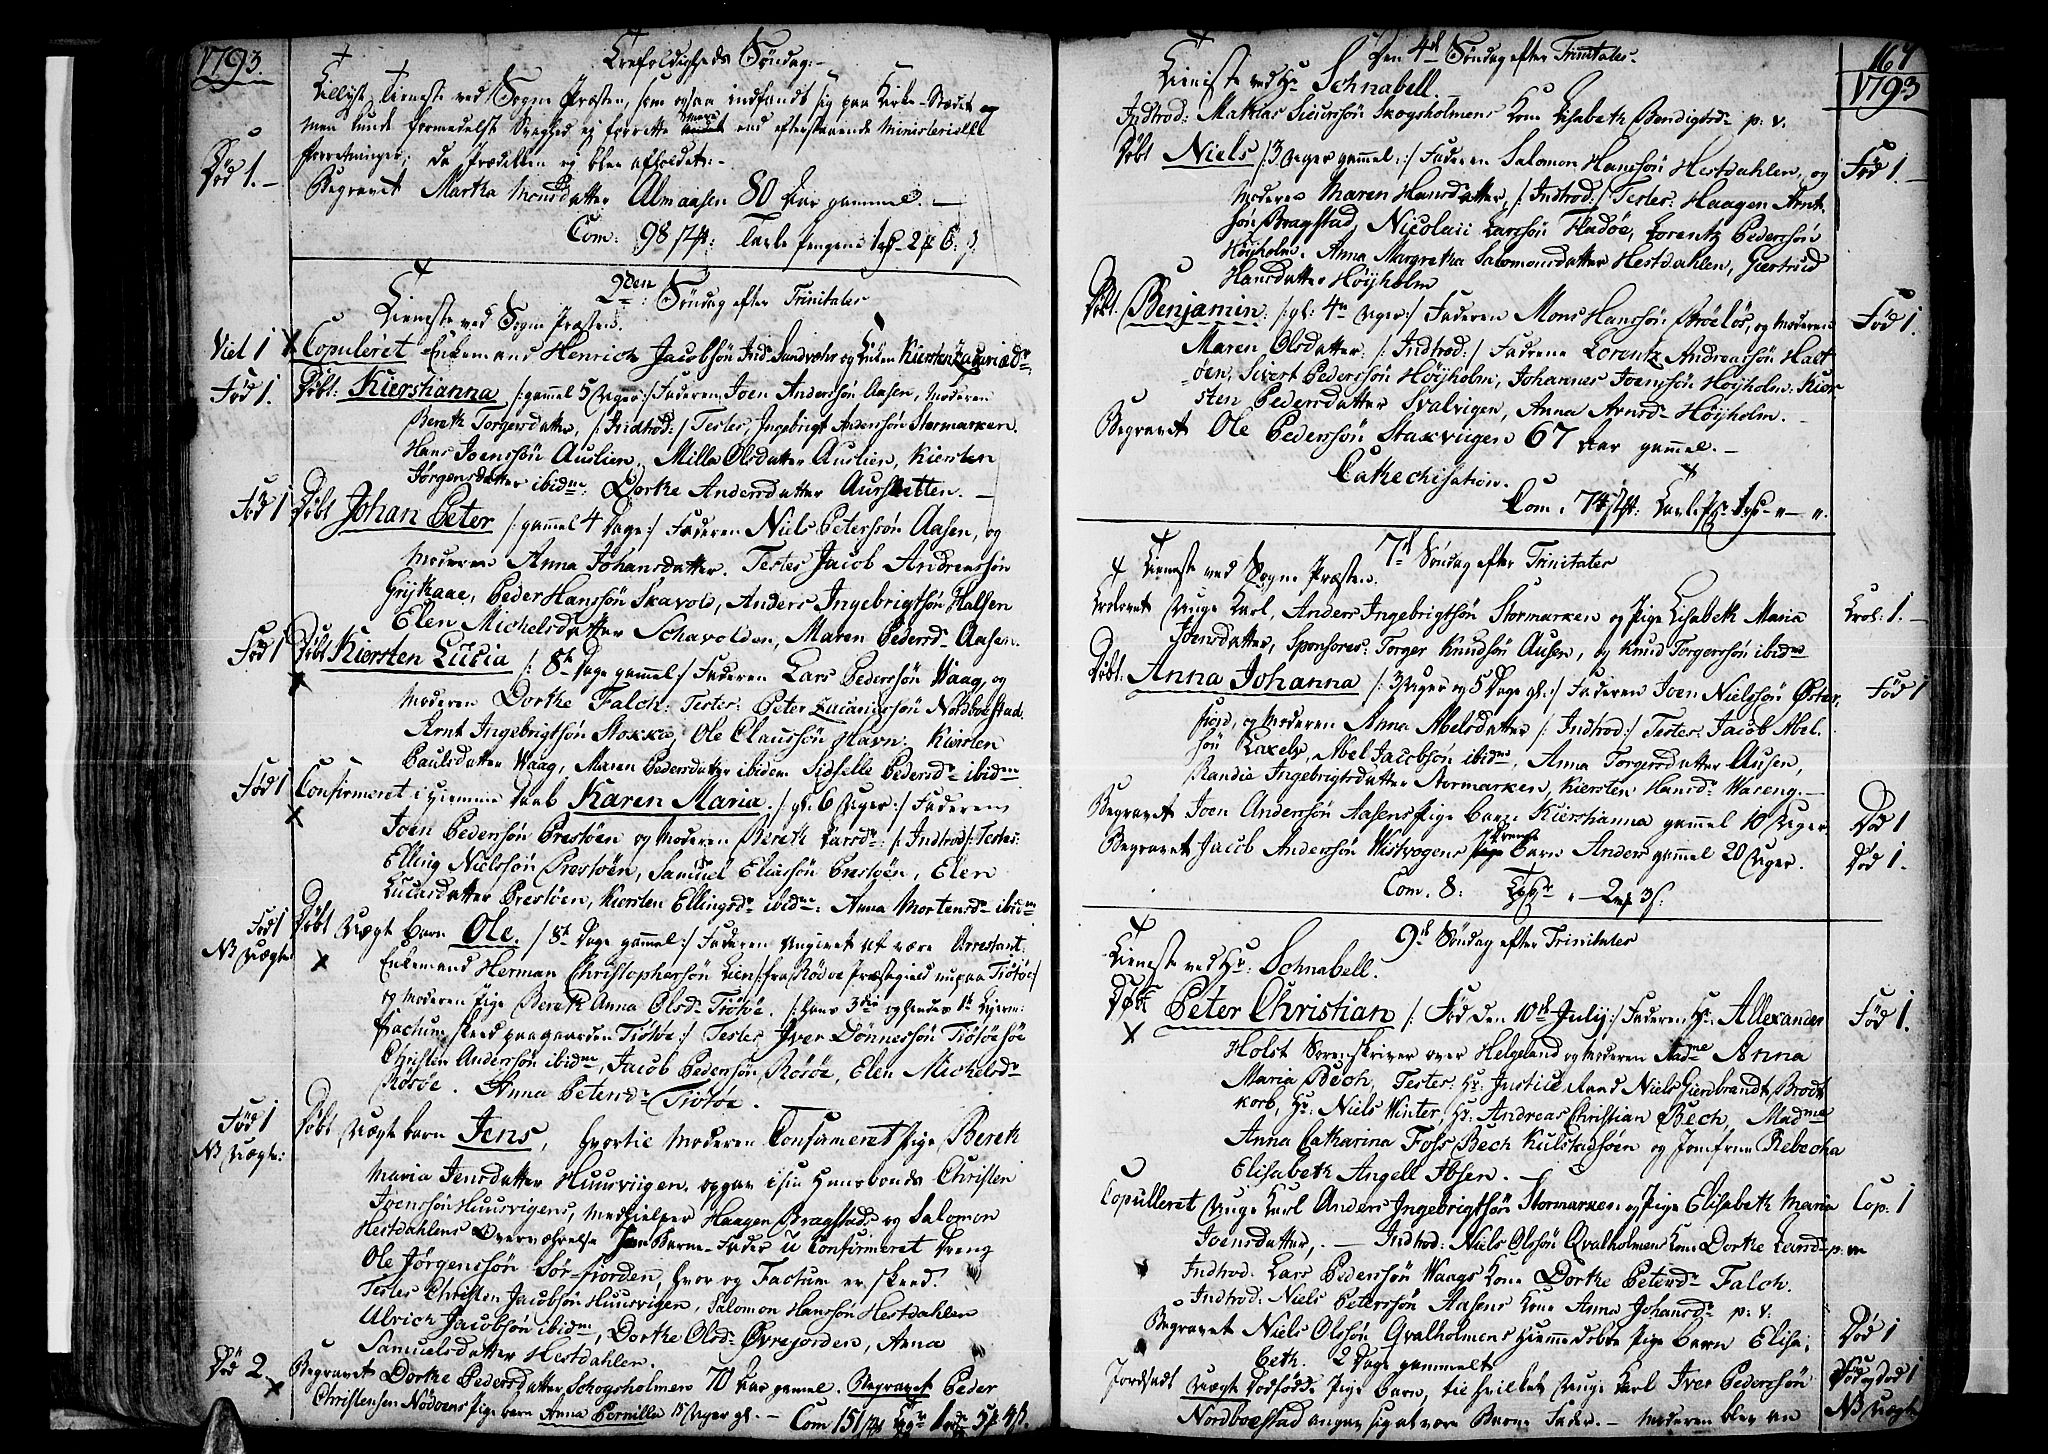 1793.
Trefoldigheds Søndag:
Tieneste ved Sogne Præsten, som ogsaa indfandt sig paa Kirke-Stædet
men kunde formedelst Svaghed ej forrette meere end efterstaaende Ministerielle
forretninger, da Prædiken ej blev afholdet:
Død 1. Begravet Martha Monsdatter Almaasen 80 Aar gammel.
Com: 98
2den Søndag efter Trinitatis
Tieneste ved Sogne Præsten.
Viel 1 Copuleret Enkemand Henrich Jacobsøn Ind: Sandvohr og Enken Kiersten Zachariædr.
Fød 1. Døbt: Kierstianna /: gammel 5 Uger :/ Faderen Joen Andersøn Aasen, Moderen
Bereth Torgersdatter, /: Indtrod :/ Testes, Ingebrigt Andersøn Stormarken.
Hans Joenssøn Auslien, Milla Olsdatter Auslien, Kiersten
Jørgensdatter ibidm: Dorthe Andersdatter Aursletten.
Fød 1 Døbt Johan Peter /: gammel 4 Dage :/ Faderen Niels Peterssøn Aasen, og
Moderen Anna Johansdatter. Testes Jacob Andreassøn
Peder Hanssøn Skavold, Anders Ingebrigtsøn Halsen
Elen Michelsdatter Schavolden, Maren Pedersd. Aasen.
Fød 1 Døbt Kiersten Lucia /: 8te Dage gammel :/ Faderen Lars Pederssøn Waag, og
Moderen Dorthe Falch: Testes: Peter Zacariassøn Nordboestad.
Arnt Ingebrigtsøn Stokka, Ole Claussøn Havn. Kiersten
Paulsdatter Waag, Maren Pedersdatter ibidem Sidselle Pedersdr. ibidm
Fød 1 Confirmeret hiemme døbt Karen Maria. /: gl: 6 Uger :/ Faderen
Joen Pedersøn Prestøen og Moderen Bereth Larsdr: /: Indtrod :/ Testes:
Elling Nielssøn Prestøen, Samuel Eliasøn Prestøen, Elen
Lucasdatter Prestøen, Kiersten Ellingsdr. ibidm: Anna Mortensdr. ibidm
Fød 1 Døbt Uægte barn Ole. /: 8te Dage gammel :/ Faderen Angivet at være Arrestant:
NB Uægte Enkemand Herman Christophersøn Lien /: fra Rødøe Præstegield nu paa Tiøtøe :/
og Moderen Pige Bereth Anna Olsdr. Tiøtøe. /: hans 3die og hendes 1te Leierm:
Factum skeed paa gaarden Tiøtøe :/ Testes Iver Dønnessøn Tiøtøe
Christen Andersøn ibidm, Jacob Pedersøn Rosøe, Elen Michelsdr.
Rosøe. Anna Petersdr. Tiøtøe.
Fød 1 Døbt Uægte barn Jens, hvortil Moderen Confirmeret Pige Bereth
NB Uægte: Maria Jensdatter Huusviigen, opgav i sin Huusbonds Christen
Joenssøn Huusvigens, Medhielper Haagen Bragstads og Salomon
Hestdahlens Overværelse Barne-Fader U Confirmeret Dreng
Ole Jørgenssøn Sør-fiorden, hvor og Factum er skeed.
Testes Christen Jacobsøn Huusvigen, Salomon Hanssøn Hestdahlen
Ulrich Jacobsøn ibidm, Dorthe Olsdr. Øvrejorden, Anna
Samuelsdatter Hestdahlen.
Død 2 Begravet Dorthe Pedersdatter Schogsholmen 70 Aar gammel. Begravet Peder
Christensen Nødøens Pige barn Anna Pernilla 15 Uger gl. Com 151
164
1793
Den 4de Søndag efter Trinitates.
Tieneste ved Hr Schnabell.
Indtrod: Mathias Siversøn Skogsholmens Kone Elisabeth Bendigtsdr. p: v.
Døbt Niels /: 3 Uger gammel :/ Faderen Salomon Hanssøn Hestdahlen, og Fød 1.
Moderen Maren Hansdatter, /: Indtrod :/ Testes: Haagen Arnt-
søn Bragstad, Nicolaii Larssøn Fladøe, Lorentz Pederssøn
Høijholm. Anna Margretha Salomonsdatter Hestdahlen, Giertrud
Hansdatter Høijholm
Døbt. Benjamin. /: gl: 4re Uger :/ Faderen Mons Hanssøn Brøeløs, og Moderen Fød 1.
Maren Olsdatter: /: Indtrod :/ Faddrene Lorentz Andreassøn Halt-
øen, Sivert Pederssøn Høijholm, Johannes Joenssøn Høijholm. Kier-
sten Pedersdatter Svalvigen, Anna Arnsdr. Høijholm.
Begravet Ole Pederssøn Staxviigen 67 Aar gammel.
Catechisation.
Com: 74
7de Søndag efter Trinitates
Tieneste ved Sogne Præsten.
Trolovet Unge Karl, Anders Ingebrigtsøn Stormarken og Pige Elisabeth Maria Trol: 1.
Joensdatter, Sponsores: Torger Knudsøn Ausen, og Knud Torgerssøn ibidm
Døbt. Anna Johanna /: 3 Uger og 5 Dage gl: :/ Faderen Joen Nielssøn Øster- Fød 1
fiord, og Moderen Anna Abelsdatter /: Indtrod :/ Testes: Jacob Abel-
søn Laxelv, Abel Jacobsøn ibidm, Anna Torgersdatter Ausen,
Randie Ingebrigtsdatter Stormarken, Kiersten Hansdr. Waseng.
Begravet Joen Anderssøn Aasens Pige barn Kierstianna gammel 10 Uger. Død 1
Begravet Jacob Anderssøn Wistvogens Drenge barn Anders gammel 20 Uger. Død 1.
Com. 8:
9de Søndag efter Trinitates
Tieneste ved Hr: Schnabell.
Døbt Peter Christian /: Fød den 10de July :/ Faderen Hr: Allexander Fød 1.
Holst Sorenskriver over Helgeland og Moderen Madme Anna
Maria Bech, Testes: Hr: Justice Raad Niels Gierbrandt Brodt-
korb, Hr: Niels Winter, Hr: Andreas Christian Bech, Madme
Anna Catharina Foss Bech Kulstadsøen og Jomfrue Rebecka
Elisabeth Angell Ibsen.
Copulleret Unge Karl Anders Ingebrigtsøn Stormarken og Pige Elisabeth Maria Cop: 1
Joensdatter, Indtrod: Niels Olssøn Qvalholmens Kone Dorthe Larsdr. p: m
Indtrod. Lars Pederssøn Waags Kone Dorthe Petersdr. Falch.
Indtrod: Niels Peterssøn Aasens Kone Anna Johansdr. p: v.
Begravet Niels Olssøn Qvalholmens hiemmedøbte Pige barn Elisa- Død 1
beth. 2 Dage gammelt
Jordfæstet Uægte dødfødde Pige barn, til hvilket Unge Karl Iver Pederssøn Fød og død 1
Nordboestad angav sig at være Barne Fader. Moderen blev an NB Uægte